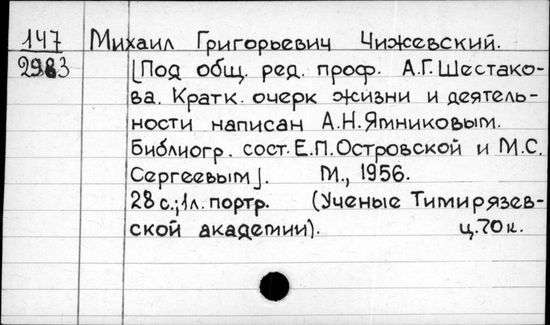 147 Михаил Григорьевич Чижевский.
2983 [Под общ. ред. проф. А.Г. Шестако-
ва. Кратк. очерк жизни и деятель-
ности написан А.Н. Ямниковым.
Библиогр. сост. Е.П. Островской и М.С.
Сергеевым]. М., 1956.
28 с.; 1 л. портр. (Ученые Тимирязев-
ской академии). ц. 70 к.